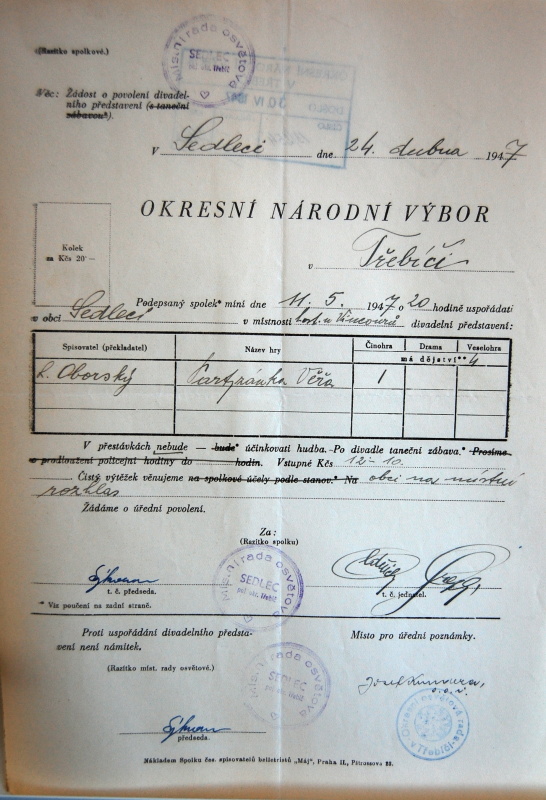 (Razítko spolkové.)
Místní rada osvětová
SEDLEC
pol. okr. Třebíč
OKRESNÍ NÁR
V TŘEB
DOŠLO
30 IV 1947
ČÍSLO
Věc: Žádost o povolení divadel-
ního představení (s taneční
zábavou*).
V Sedleci dne 24. dubna 1947
OKRESNÍ NÁRODNÍ VÝBOR
Kolek
za Kčs 20·—
v Třebíči
Podepsaný spolek* míní dne 11. 5. 1947 o 20 hodině uspořádati
v obci Sedleci v místnosti host. u Vincourů divadelní představení:
Spisovatel (překladatel) Název hry Činohra Drama Veselohra
má dějství** 4
L. Oborský Partyzánka Věra 1
V přestávkách nebude — bude* účinkovati hudba. Po divadle taneční zábava.* Prosíme
o prodloužení policejní hodiny do hodin. Vstupné Kčs 12-10.
Čistý výtěžek věnujeme na spolkové účely podle stanov.* Na obci na místní
rozhlas
Žádáme o úřední povolení.
Za:
(Razítko spolku)
Místní rada osvětová
SEDLEC
pol. okr. Třebíč
t. č. předseda.
t. č. jednatel.
* Viz poučení na zadní straně.
Proti uspořádání divadelního předsta-
vení není námitek.
Místo pro úřední poznámky.
(Razítko míst. rady osvětové.)
Místní rada osvětová
SEDLEC
pol. okr. Třebíč
Josef
Okresní osvětová rada
v Třebíči
předseda.
Nákladem Spolku čes. spisovatelů beletristů „Máj", Praha II., Pštrossova 23.